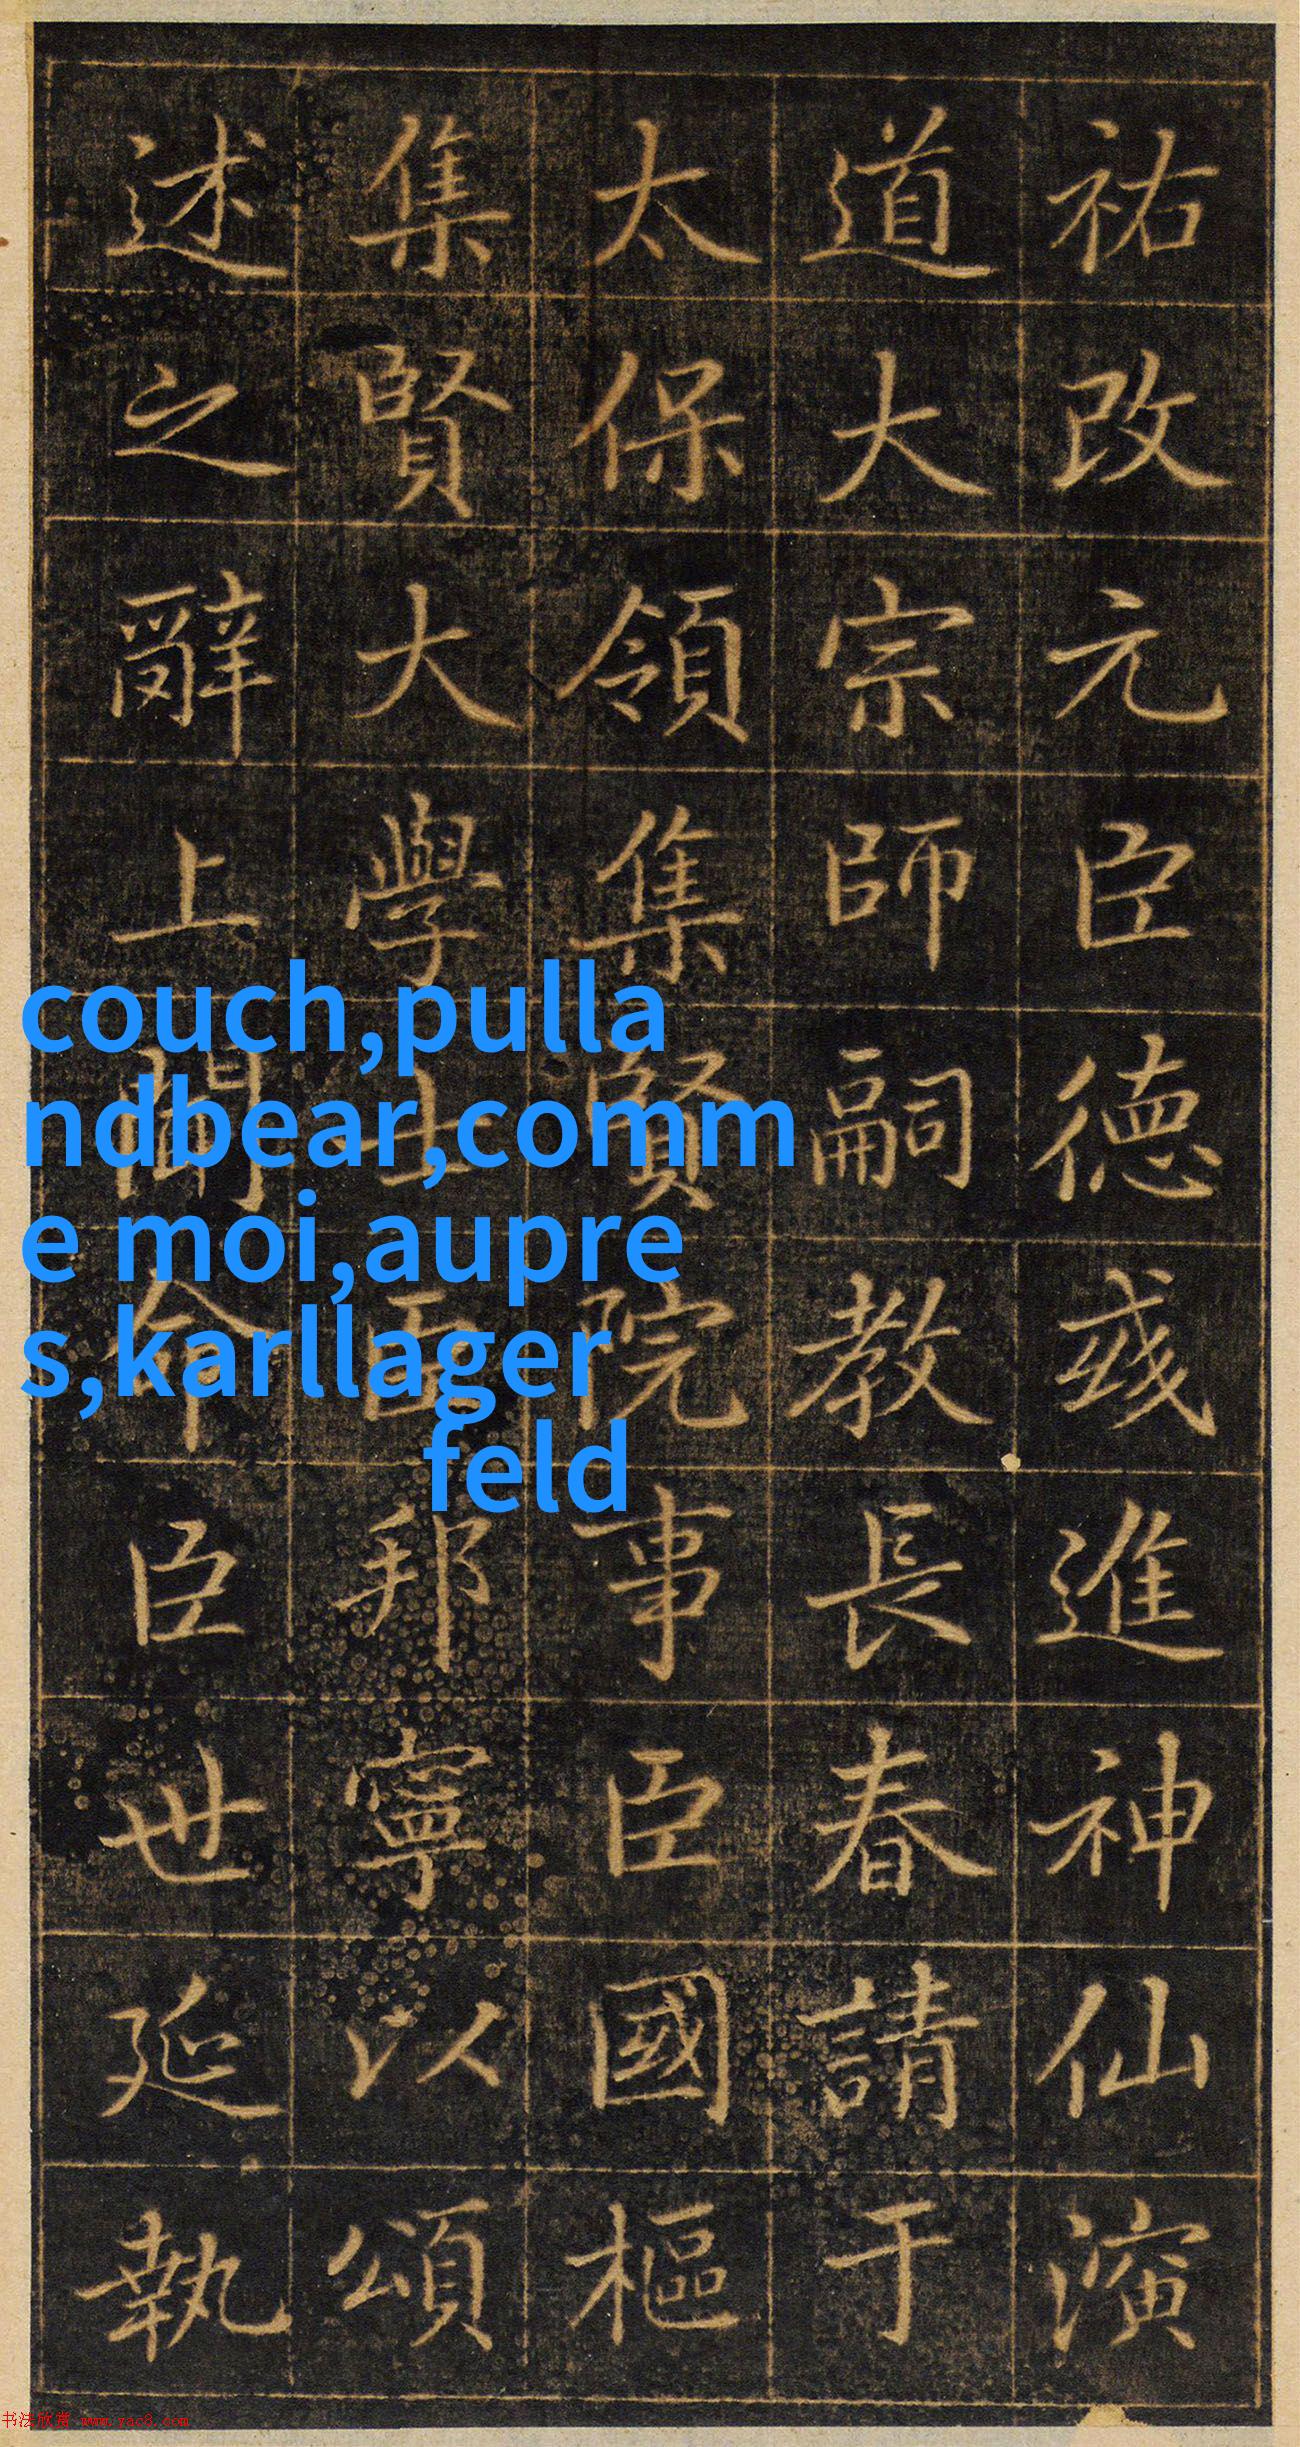 祐改元臣德彧進神仙演
道大宗師嗣教長春請于
太保領集賢院事臣國樞
集賢大學士臣邦寧以頌
述之辭上聞命臣世延執
couch,pulla
ndbear,comm
e moi,aupre
s,karllager
feld
书法欣赏 www.yac8.com